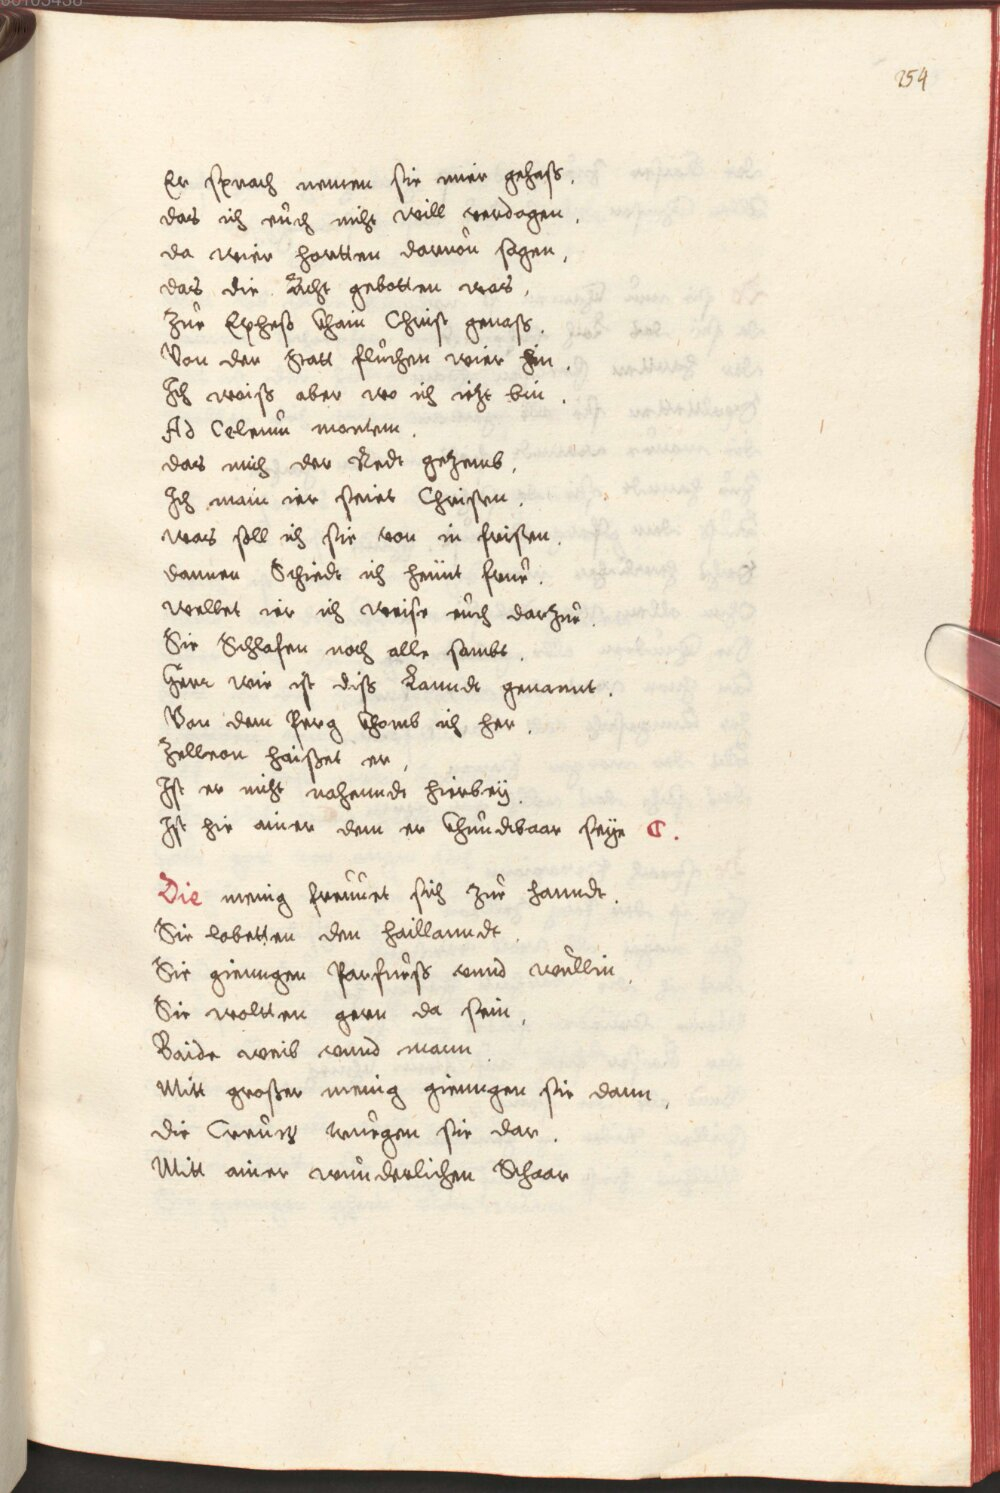 254
Er sprach nemen sie mier gehass.
das ich eüch nicht will verdagen.
da wier hortten darvon sagen,
das die Ächt gebotten was,
Zur Epheß Khain Christ genass.
Von der Statt fluchen wier hin.
Ich waiß aber wo ich icht bin.
Ad Celeum montem.
das mich der Redt gezemb,
Ich main ier seiet Christen.
was soll ich sie von in fristen.
dannen Schiedt ich heünt frue.
wellet ier ich weise eüch darzue.
Sie Schlafen noch alle sambt.
Herr wie ist diß Lanndt genannt.
Von dem Perg Khomb ich her.
Zelleon haißet er,
Ist er nicht nahenndt hierbeÿ.
Ist hie ainer dem er Khundtbaar seÿe C.
Die menig freüuet sich zue hanndt.
Sie lobetten den haillanndt
Sie giengen Parfueß vnnd wullin
Sie woltten gern da sein,
Baide weib vnnd mann
Mitt großer menig giengen sie dann,
die Creütz truegen sie dar.
Mitt ainer wunderlichen Schaar